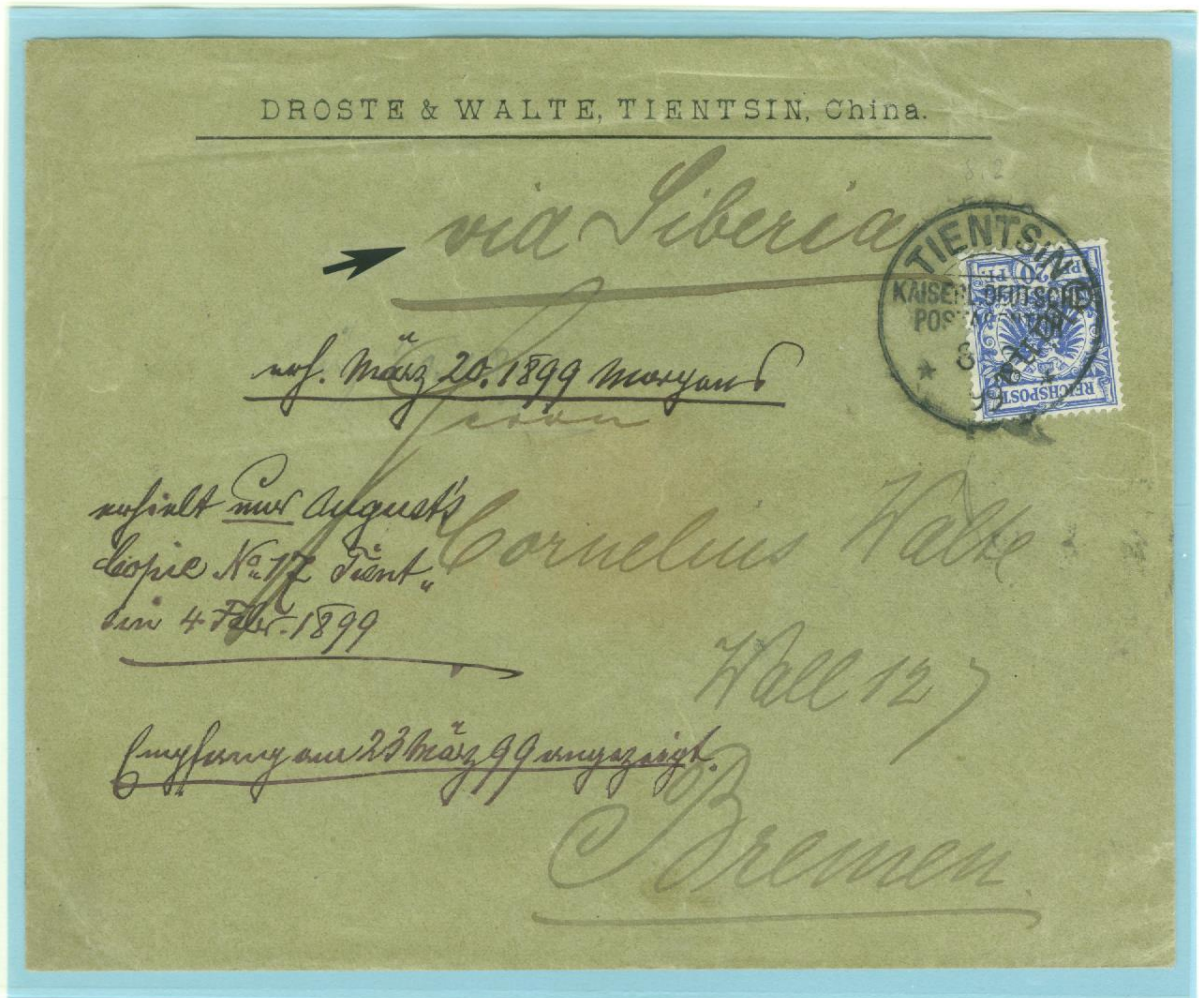 DROSTE & WALTE, TIENTSIN, China.
8.2
via Siberia
TIENTSIN
KAISERL. DEUTSCHE
POSTAGENTUR
8
99
20 PF.
REICHSPOST
erh. März 20. 1899 Morgens
Herrn
erhielt nur August's
Copie No. 17 Tient„
sin 4 Febr. 1899
Cornelius Walte
Wall 127
Empfang am 23 März 99 angezeigt.
Bremen